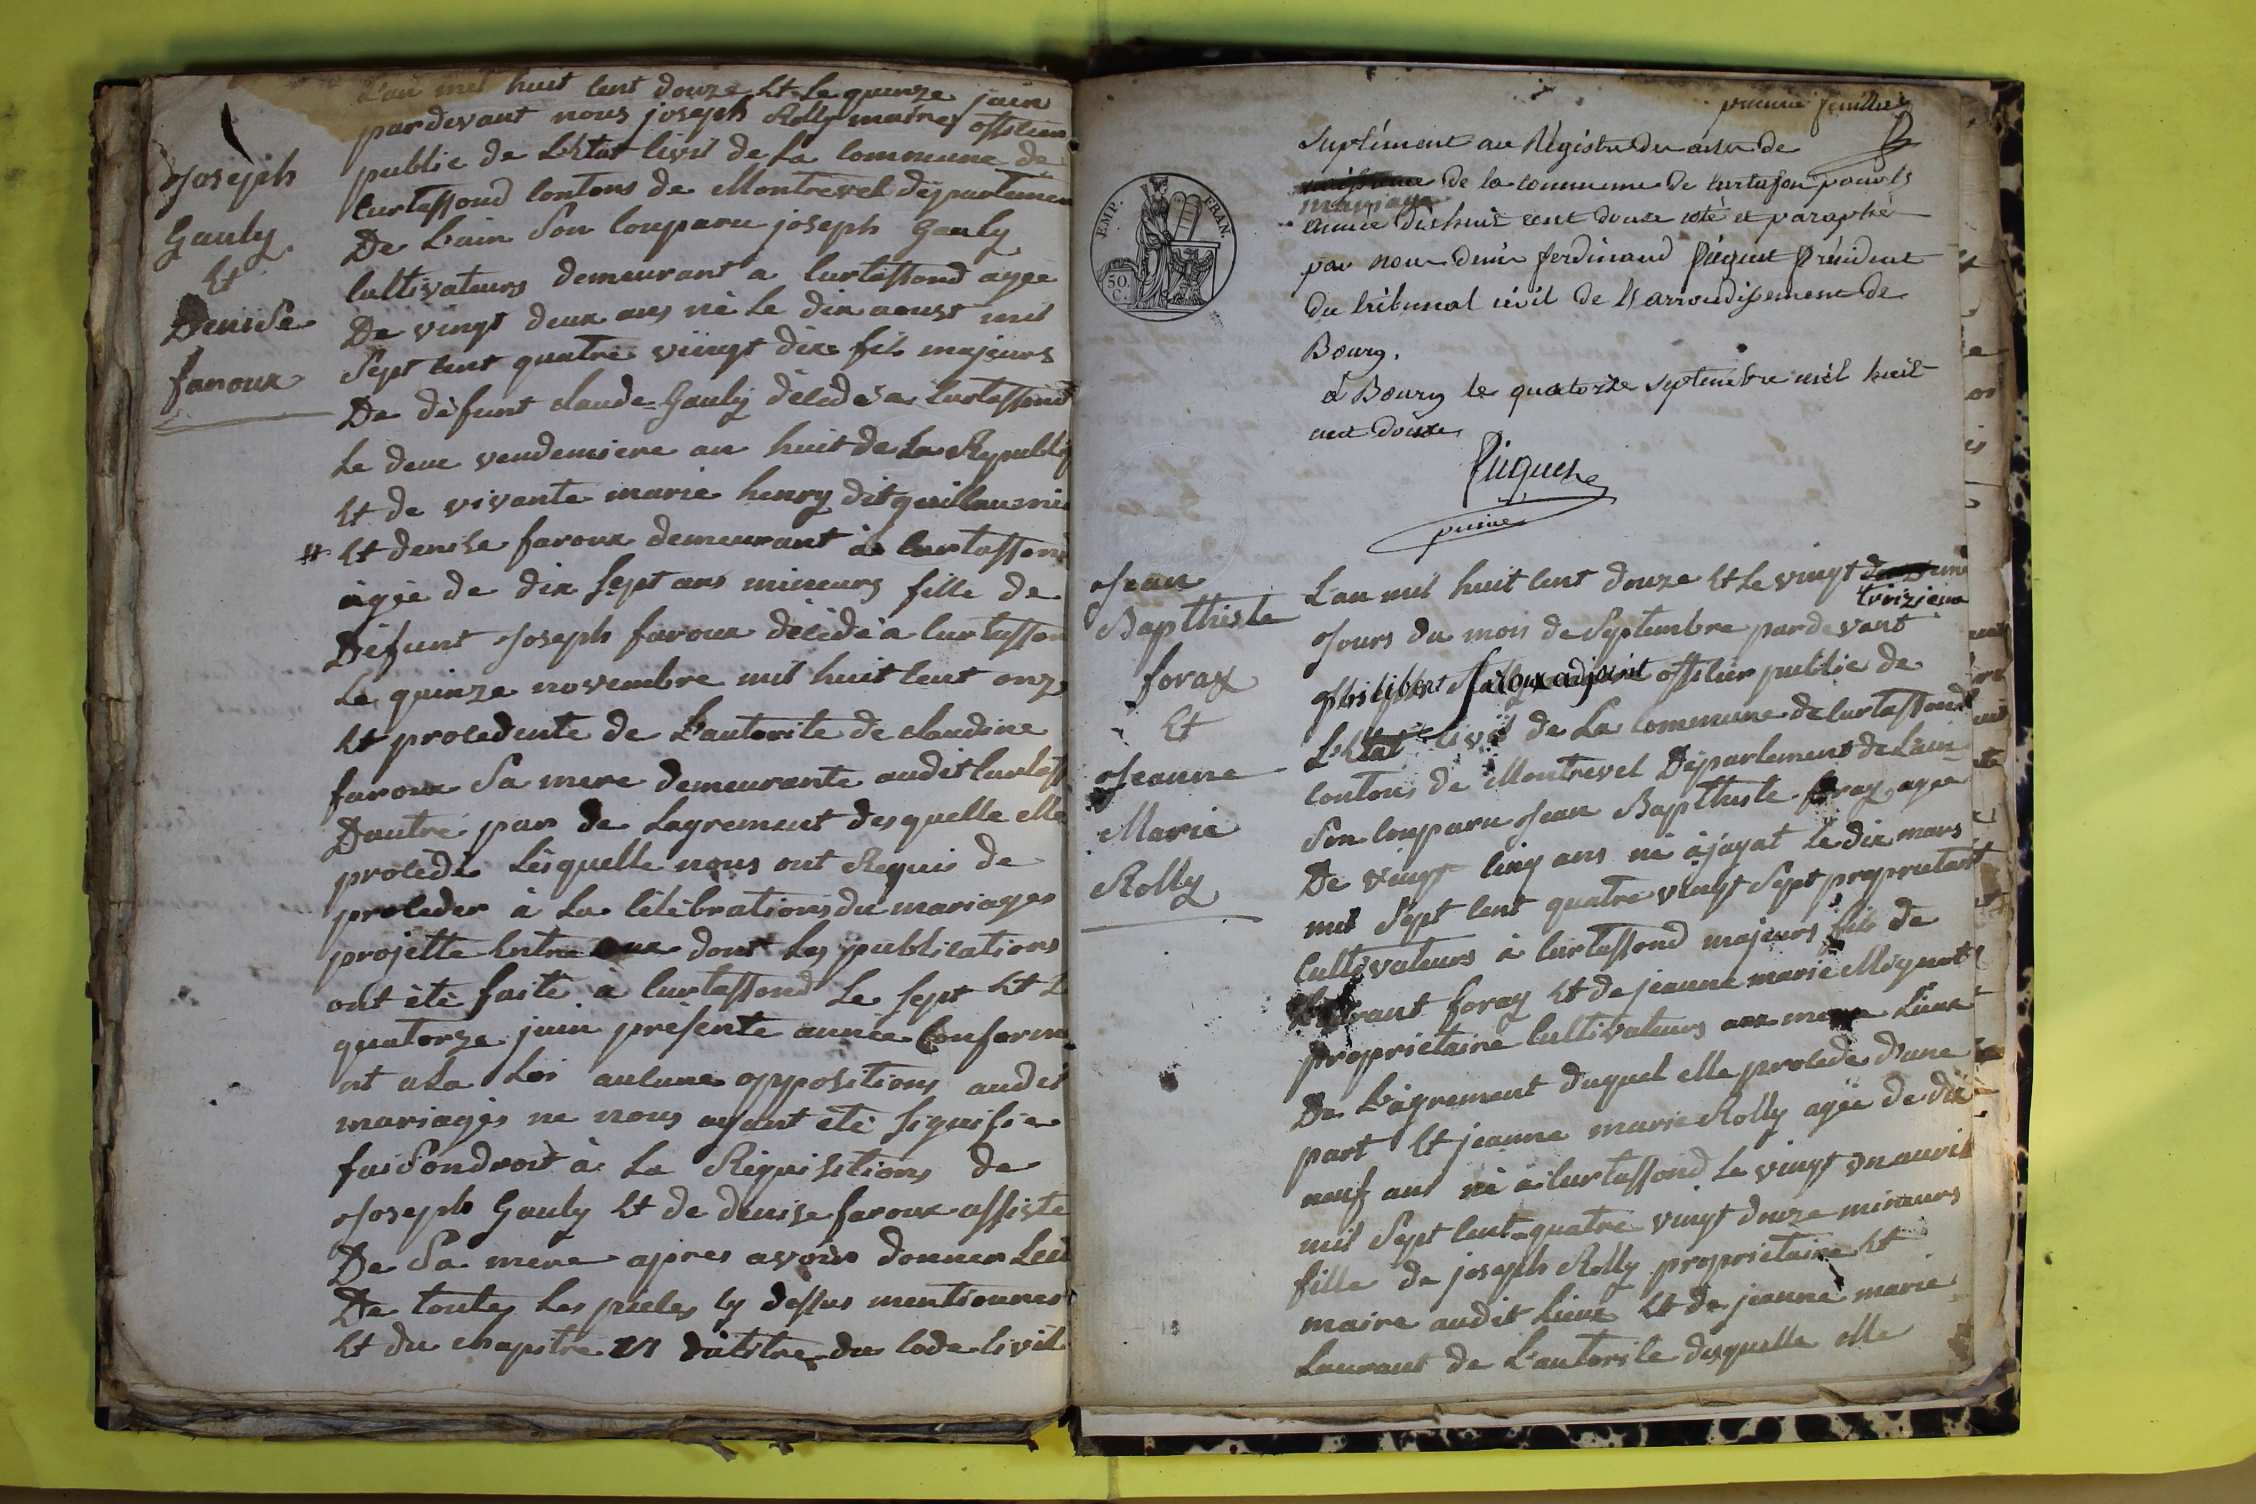 L'an mil huit Cent douze Et Le quinze juin
pardevant nous joseph Rolly maires offitier
public de L'Etat Civil de La Commune de
Curtaffond Contons de Montrevel Département
De L'ain Son Comparu joseph Gauly
Cultivateurs demeurant a Curtaffond agée
De vingt deux ans né Le dix aoust mil
Sept Cent quatre viingt dix fils majeurs
De défunt claude Gauly décédé a Curtaffond
Le deux vendemiere an huit de La Republiq
Et de vivante marie henry dit guillaumin
# Et denise faroux demeurant à Curtaffond
àgée de dix Sept ans mineurs fille de
Défunt Joseph faroux décédé a Curtaffon
Le quinze novembre mil huit Cent onze
Et procedente de L'autorite de claudine
faroux Sa mere demeurante audit Curtaff
D'autre par de Lagrement desquelle elle
procede Lesquelle nous ont Requis de
proceder à La Célébrations du mariages
projette Entre eux dont Les publications
ont été faite à Curtaffond Le Sept Et L
quatorze juin présente année Conform
nt a La Loi aucune oppositions audit
mariages ne nous ayant été signifie
faisondroit à La Réquisitions de
Joseph Gauly Et de denise faroux assiste
De Sa mere apres avoir donner Lect
De toutes Les pieces Cy dessus mentionnes
Et du chapitre VI du titre du Code Civil
Joseph
Gauly
Et
Denise
faroux
premier feuillet
Suplément au Régistre des actes de
naissance de la commune de Curtafon pour l
mariage
année dixhuit cent douze coté et paraphé
par nous denis ferdinand Piquet Président
du tribunal civil de l'arrondissement de
Bourg.
à Bourg le quatorze Septembre mil huit
cent douze
Piquet
EMP. FRAN.
50.
C.
Jean
Bapthiste
foray
Et
Jeanne
Marie
Rolly
L'an mil huit Cent douze Et Le vingt
troizieme
Jours du mois de Septembre pardevant
Philibert adjoint offitier public de
L'Etat Civil de La Commune de Curtaffond
Contons de Montrevel Département de L'ain
Son Comparu Jean Bapthiste foray agee
De vingt Cinq ans né à jayat Le dix mars
mil Sept Cent quatre vingt Sept proprietair
Cultivateurs à Curtaffond majeurs fils de
foray Et de jeanne marie Mignot
proprietaire Cultivateurs aux meme Lieux
De L'agrement duquel elle procede d'une
part Et jeanne marie Rolly agée de dix
neuf ans né à Curtaffond Le vingt un avril
mil Sept Cent quatre vingt douze mineurs
fille de joseph Rolly proprietaire Et
maire audit Lieux Et de jeanne marie
Laurant de L'autorite desquelle elle